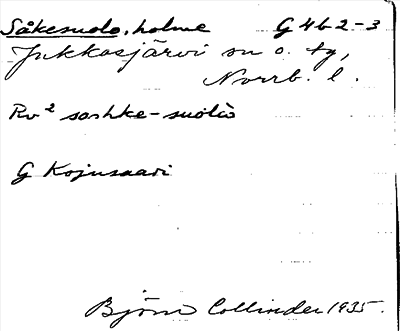 Såkesuolo, holme G 4b 2-3
Jukkasjärvi sn o. tg,
Norrb. l.
Rv² soshke-suōlō
G Kojusaari
Björn Collinder 1935.